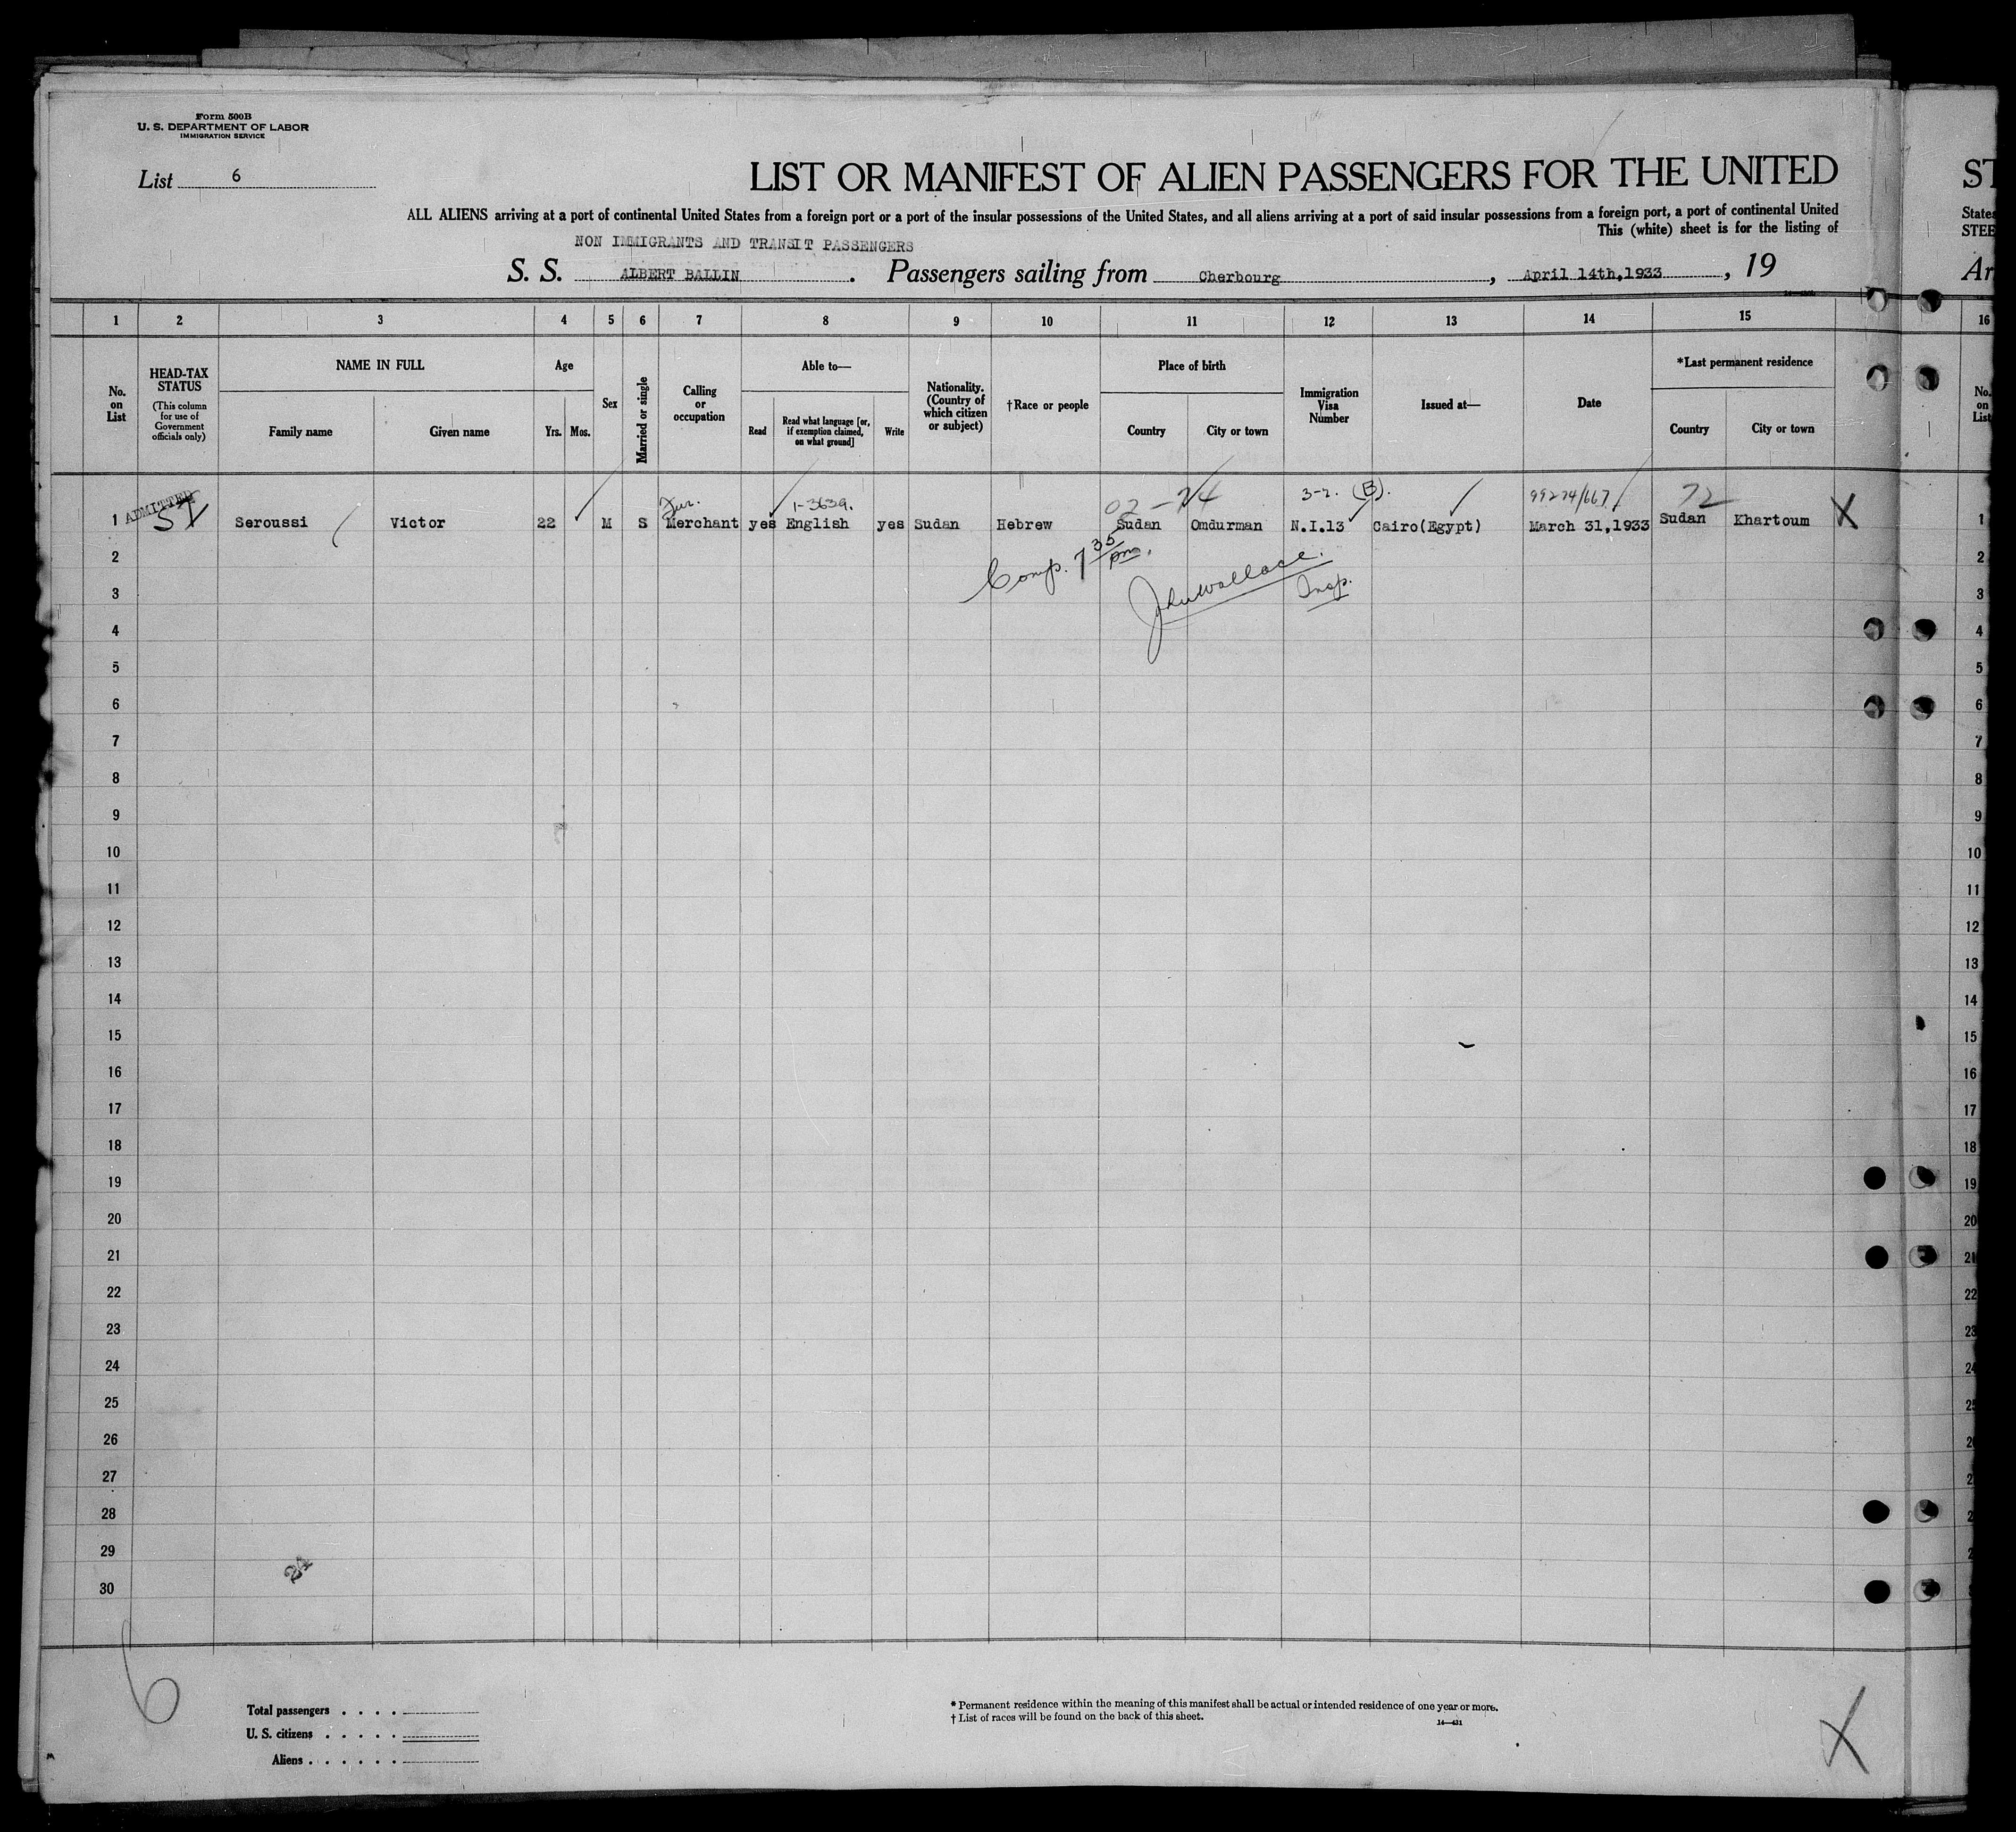 Form 500B
U. S. DEPARTMENT OF LABOR
IMMIGRATION SERVICE
List 6
LIST OR MANIFEST OF ALIEN PASSENGERS FOR THE UNITED
ALL ALIENS arriving at a port of continental United States from a foreign port or a port of the insular possessions of the United States, and all aliens arriving at a port of said insular possessions from a foreign port, a port of continental United
This (white) sheet is for the listing of
NON IMMIGRANTS AND TRANSIT PASSENGERS
S. S. ALBERT BALLIN. Passengers sailing from Cherbourg, April 14th,1933, 19
ST
States
STEE
Ar
1 2 3 4 5 6 7 8 9 10 11 12 13 14 15 16
No. on List
HEAD-TAX STATUS
(This column for use of Government officials only)
NAME IN FULL
Family name
Given name
Age
Yrs. Mos.
Sex
Married or single
Calling or occupation
Able to—
Read
Read what language [or, if exemption claimed, on what ground]
Write
Nationality. (Country of which citizen or subject)
†Race or people
Place of birth
Country
City or town
Immigration Visa Number
Issued at—
Date
*Last permanent residence
Country
City or town
No. on List
ADMITTED
1-3639.
02-74
3-2. (B).
99274/667
72
1 Seroussi Victor 22 M S Merchant yes English yes Sudan Hebrew Sudan Omdurman N.I.13 Cairo(Egypt) March 31,1933 Sudan Khartoum X 1
Comp. 7 35 pm.
John Wallace.
Insp.
2 2
3 3
4 4
5 5
6 6
7 7
8 8
9 9
10 10
11 11
12 12
13 13
14 14
15 15
16 16
17 17
18 18
19 19
20 20
21 21
22 22
23 23
24 24
25 25
26
27
28
29
30
24
6
Total passengers . . . .
U. S. citizens . . . . .
Aliens . . . . . .
* Permanent residence within the meaning of this manifest shall be actual or intended residence of one year or more.
† List of races will be found on the back of this sheet.
14—431
X